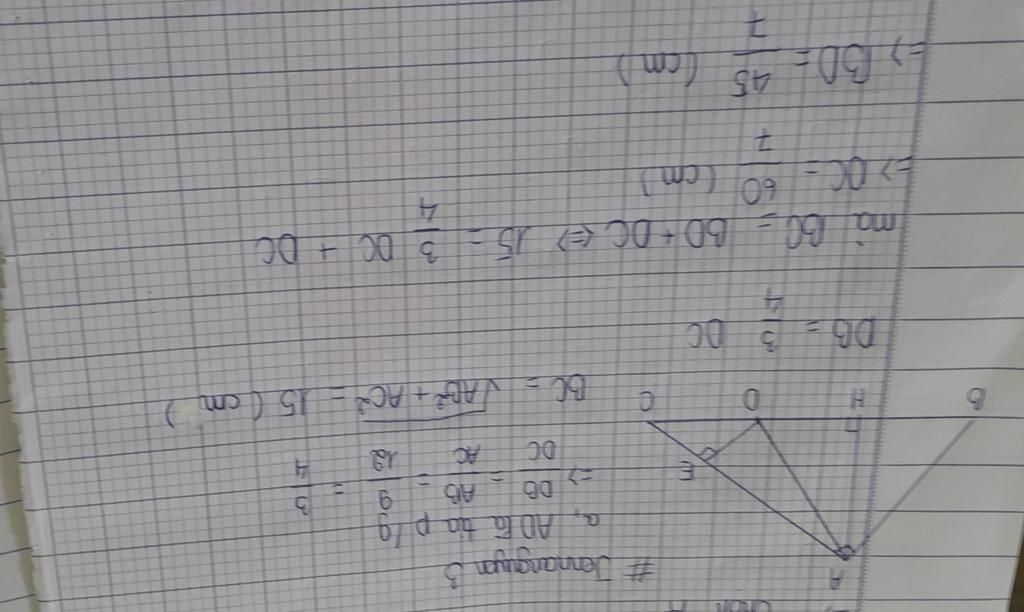 # Jannanguyn 3
a, AD là tia p/g
=> DB/DC = AB/AC = 9/12 = 3/4
BC = √AB² + AC² = 15 (cm)
DB = 3/4 DC
mà BC = BD + DC <=> 15 = 3/4 DC + DC
=> DC = 60/7 (cm)
=> BD = 45/7 (cm)
A
E
B H D C